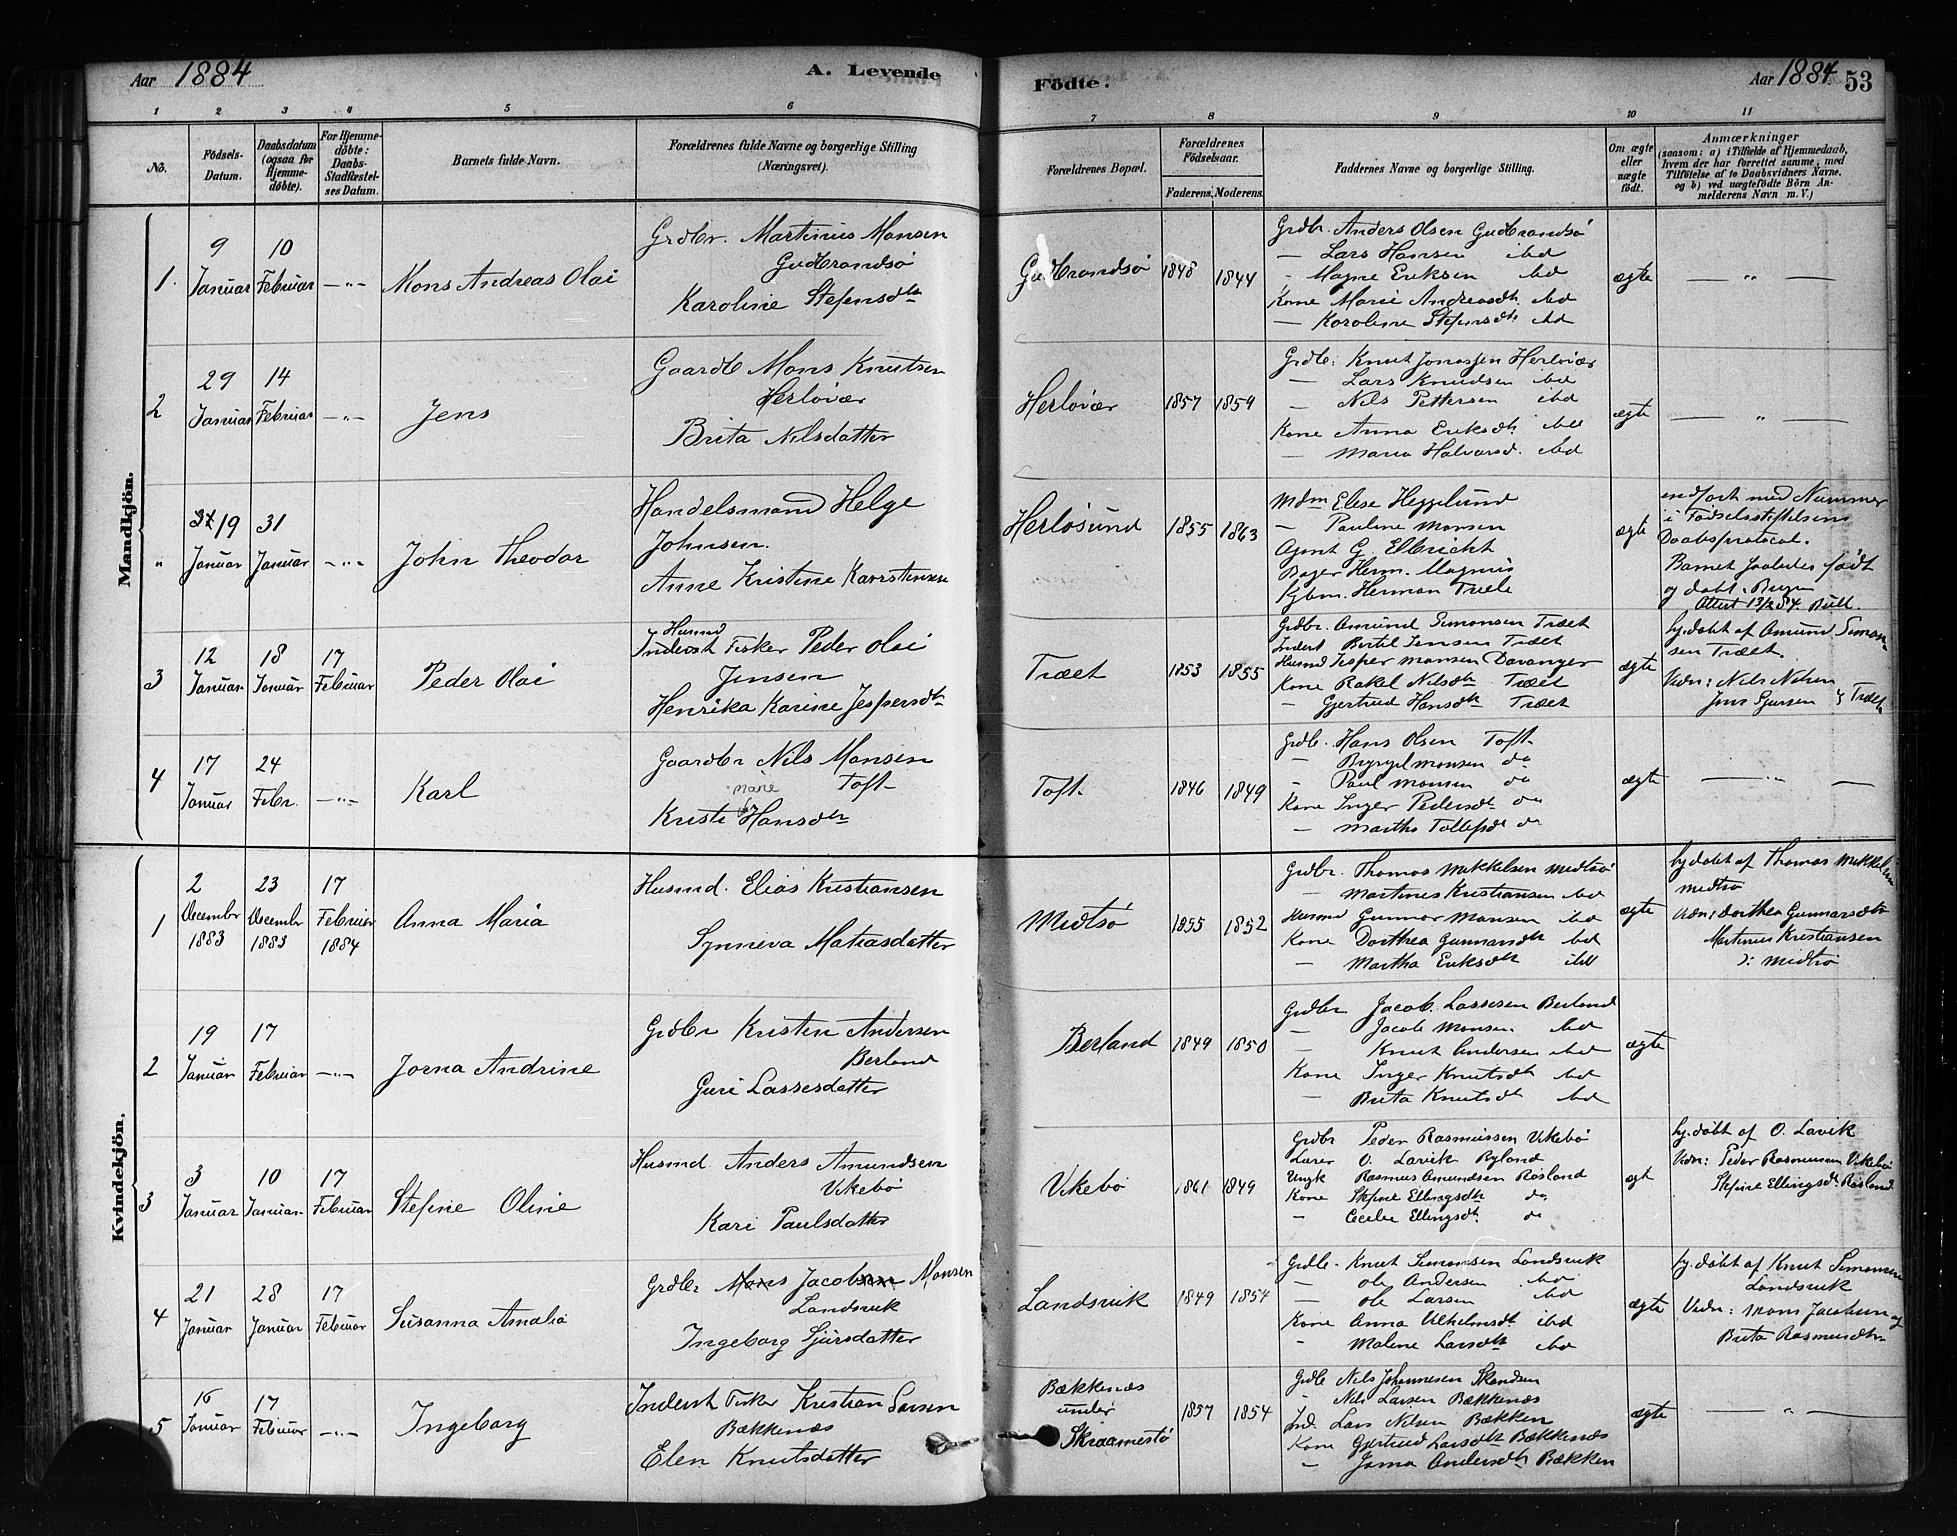 Aar 1884
A. Levende
Födte.
Aar 1884
53
1 2 3 4 5 6 7 8 9 10 11
No.
Födsels-
Datum.
Daabsdatum
(ogsaa for
Hjemme-
döbte).
For Hjemme-
döbte:
Daabs-
Stadfæstel-
ses Datum.
Barnets fulde Navn.
Forældrenes fulde Navne og borgerlige Stilling
(Næringsvei).
Forældrenes Bopæl.
Forældrenes
Födselsaar.
Faderens. Moderens.
Faddernes Navne og borgerlige Stilling.
Om ægte
eller
uægte
födt.
Anmærkninger
(saasom: a) i Tilfælde af Hjemmedaab,
hvem der har forrettet samme, med
Tilföielse af to Daabsvidners Navne.
og b) ved uægtefödte Börn An-
melderens Navn m. V.)
Mandkjön.
1.
9
Januar
10
Februar
-„-
Mons Andreas Olai
Grdbr. Martinus Monsen
Gudbrandsö
Karoline Stefensdtr
Gudbrandsö
1848
1844
Grdbr. Anders Olsen Gudbrandsö
— Lars Hansen ibd
- Magne Eriksen ibd
Kone Marie Andreasdtr. ibd
— Karoline Stefensdtr ibd
ægte
— „ —
2
29
Januar
14
Februar
-„-
Jens
Gaardb Mons Knutsen
Herlövær
Brita Nilsdatter
Herlovær
1857
1859
Grdb. Knut Jonassen Herlövær
— Lars Knudsen ibd
— Nils Pettersen ibd
Kone Anna Eriksdtr ibd
— Maria Halvarsd. ibd
ægte
— „ —
„
31 19
Januar
31
Januar
-„-
John Theodor
Handelsmand Helge
Johnsen.
Anne Kristine Karstensen
Herlösund
1855
1863
Mdm Elese Hegglund
— Pauline Monsen
Agent G. Elbricht
Bager Herm. Magnus
Kjbm. Herman Triele
ægte
indfört med Nummer
i Födselsstiftelsens
Daabsprotocol.
Barnet saaledes födt
og döbt i Bergen
Attest 13/2 84. Bull.
3
12
Januar
18
Januar
17
Februar
Peder Olai
Husmd
Inderst Fisker Peder Olai
Jensen
Henrika Karine Jespersdtr
Træet
1853
1855
Grdbr. Amund Simonsen Træet
Inderst Bertil Jensen Træet
Husmd Jesper Monsen Davanger
Kone Rakel Nilsdtr Træet
— Gjertrud Hansdtr Træet
ægte
hj.döbt af Amund Simon-
sen Træet.
Vidn: Nils Nilsen
Jens Sjursen } Træet
4
17
Januar
24
Febr.
-„-
Karl
Gaardbr Nils Monsen
Marie Toft
Kristi Hansdtr
Toft
1846
1849
Grdb. Hans Olsen Toft
— Brynjel Monsen do
- Paul Monsen do
Kone Inger Pedersdtr do
— Martha Tollefsdtr do
ægte
— „ —
Kvindekjön.
1
2
December
1883
23
December
1883
17
Februar
1884
Anna Maria
Husmd. Elias Kristiansen
Synneva Matiasdatter
Midtsö
1855
1852
Grdbr. Thomas Mikkelsen Midtsö
— Martinus Kristiansen ibd
Husmd Gunnar Monsen ibd
Kone Dorthea Gunnarsdtr ibd
— Martha Eriksdtr ibd
ægte
hj.döbt af Thomas Mikkelsen
Midtsö
Vidn: Dorthea Gunnarsdtr
Martinus Kristiansen
Midtsö
2
19
Januar
17
Februar
-„-
Jorna Andrine
Grdbr Kristen Andersen
Berland
Guri Lassesdatter
Berland
1849
1850
Grdbr Jacob Lassesen Berland
— Jacob Monsen ibd
— Knut Andersen ibd
Kone Inger Knutsdtr ibd
— Brita Knutsdtr ibd
ægte
3
3
Januar
10
Januar
17
Februar
Stefine Oline
Husmd Anders Amundsen
Vikebö
Kari Paulsdatter
Vikebö
1861
1849
Grdbr Peder Rasmussen Vikebö
Lærer O. Lavik Byland
Ungk Rasmus Amundsen Rösland
Kone Stefine Ellingsdtr do
— Cecilie Ellingsdtr. do
ægt
hj.döbt af O. Lavik
Vidn: Peder Rasmussen Vikebö
Stefine Ellingsdtr Rösland
4
21
Januar
28
Januar
17
Februar
Susanna Amalia
Grdbr Mons Jacobsen Monsen
Landsvik
Ingeborg Sjursdatter
Landsvik
1849
1854
Grdb. Knut Simonsen Landsvik
— Ole Andersen ibd
— Ole Larsen ibd
Kone Anna Vilhelmsdtr ibd
- Malene Larsdtr ibd
ægte
hj.döbt af Knut Simonsen
Landsvik
Vidn: Mons Jacobsen og
Brita Rasmusdtr
5
16
Januar
17
Februar
-„-
Ingeborg
Inderst Fisker Kristian Larsen
Bækkenæs
Elen Knutsdatter
Bækkenæs
under
Skraamestö
1857
1854
Grdb Nils Johannesen
- Nils Larsen Bækkenæs
Ind. Lars Nilsen Bækken
Kone Gjertrud Larsdtr Bækkenæs
— Jorna Andersdtr Bækken
ægte
— „ —